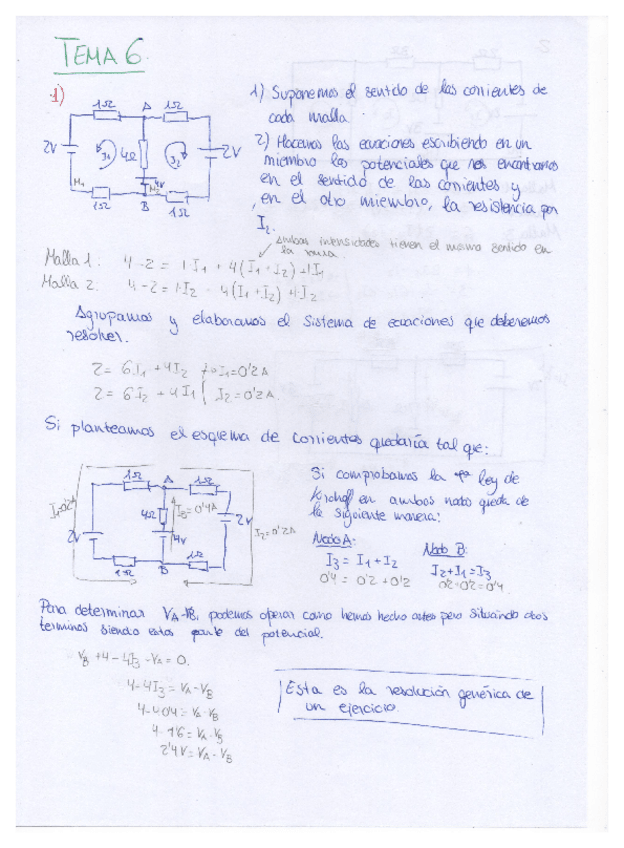 TEMA 6
1)
1Ω A 1Ω
2V I1 4Ω I2 2V
M1 4V M2
1Ω B 1Ω
1) Suponemos el sentido de las corrientes de
cada malla
2) Hacemos las ecuaciones escribiendo en un
miembro los potenciales que nos encontramos
en el sentido de las corrientes y
, en el otro miembro, la resistencia por
I2.
Ambas intensidades tienen el mismo sentido en
la rama.
Malla 1: 4-2 = 1·I1 + 4(I1+I2)+1I1
Malla 2. 4-2 = 1·I2 - 4(I1+I2)+1·I2
Agrupamos y elaboramos el sistema de ecuaciones que deberemos
resolver.
2 = 6I1 + 4I2 I1=0'2A
2 = 6I2 + 4I1 I2=0'2A.
Si planteamos el esquema de corrientes quedaría tal que:
1Ω A 1Ω
I1=0'2A 2V 4Ω I3=0'4A 2V I2=0'2A
4V
1Ω B 1Ω
Si comprobamos la 1ª ley de
Kirchoff en ambos nodos queda de
la siguiente manera:
Nodo A: Nodo B:
I3 = I1 + I2 I2+I1=I3
0'4 = 0'2 + 0'2 0'2+0'2=0'4
Para determinar VA-VB, podemos operar como hemos hecho antes pero situando otros
terminos siendo estos parte del potencial.
VB +4-4I3-VA=0.
4-4I3=VA-VB
4-4·0'4=VA-VB
4-1'6=VA-VB
2'4V=VA-VB
Esta es la resolución genérica de
un ejercicio.